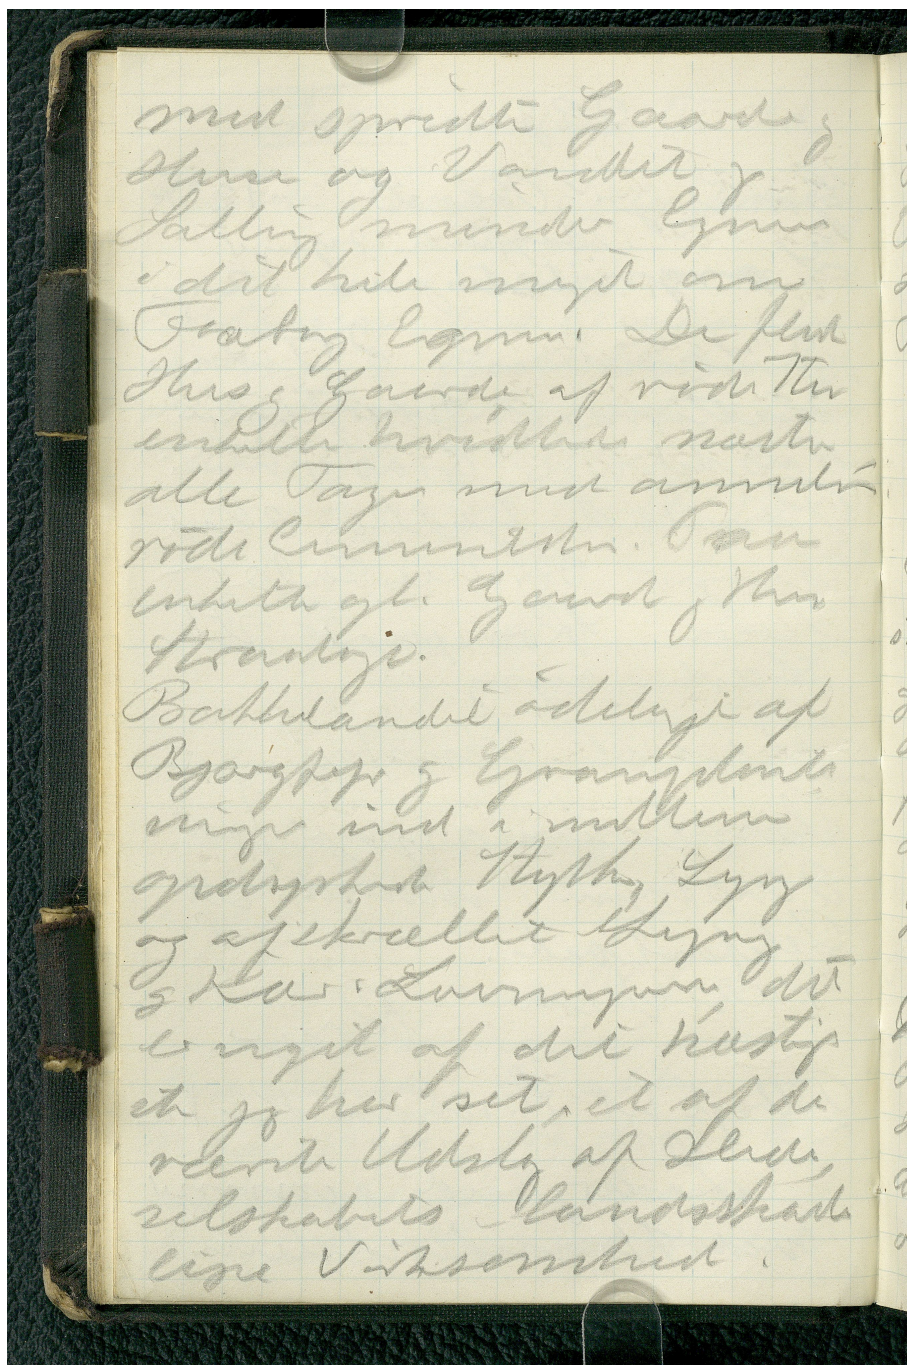 med spredte Gaarde og
Huse og Vandet og
Salling minder Egnen
i det hele meget om
Faaborg Egnen. De fleste
Hus og Gaarde af röde Sten
enkelte hvidtede næsten
alle Tage med
röde Cementsten. Faa
enkelte gl. Gaard og Hus
Straatage.
Bakkelandet ödelagt af
Bjergfyr og Granplant
ninger ind i mellem
Lyng
og afskrællet Lyng
og det
er noget af det hæslig
ste jeg har set, et af de
værste Udslag af Hede
selskabets landsskade
lige Virksomhed.